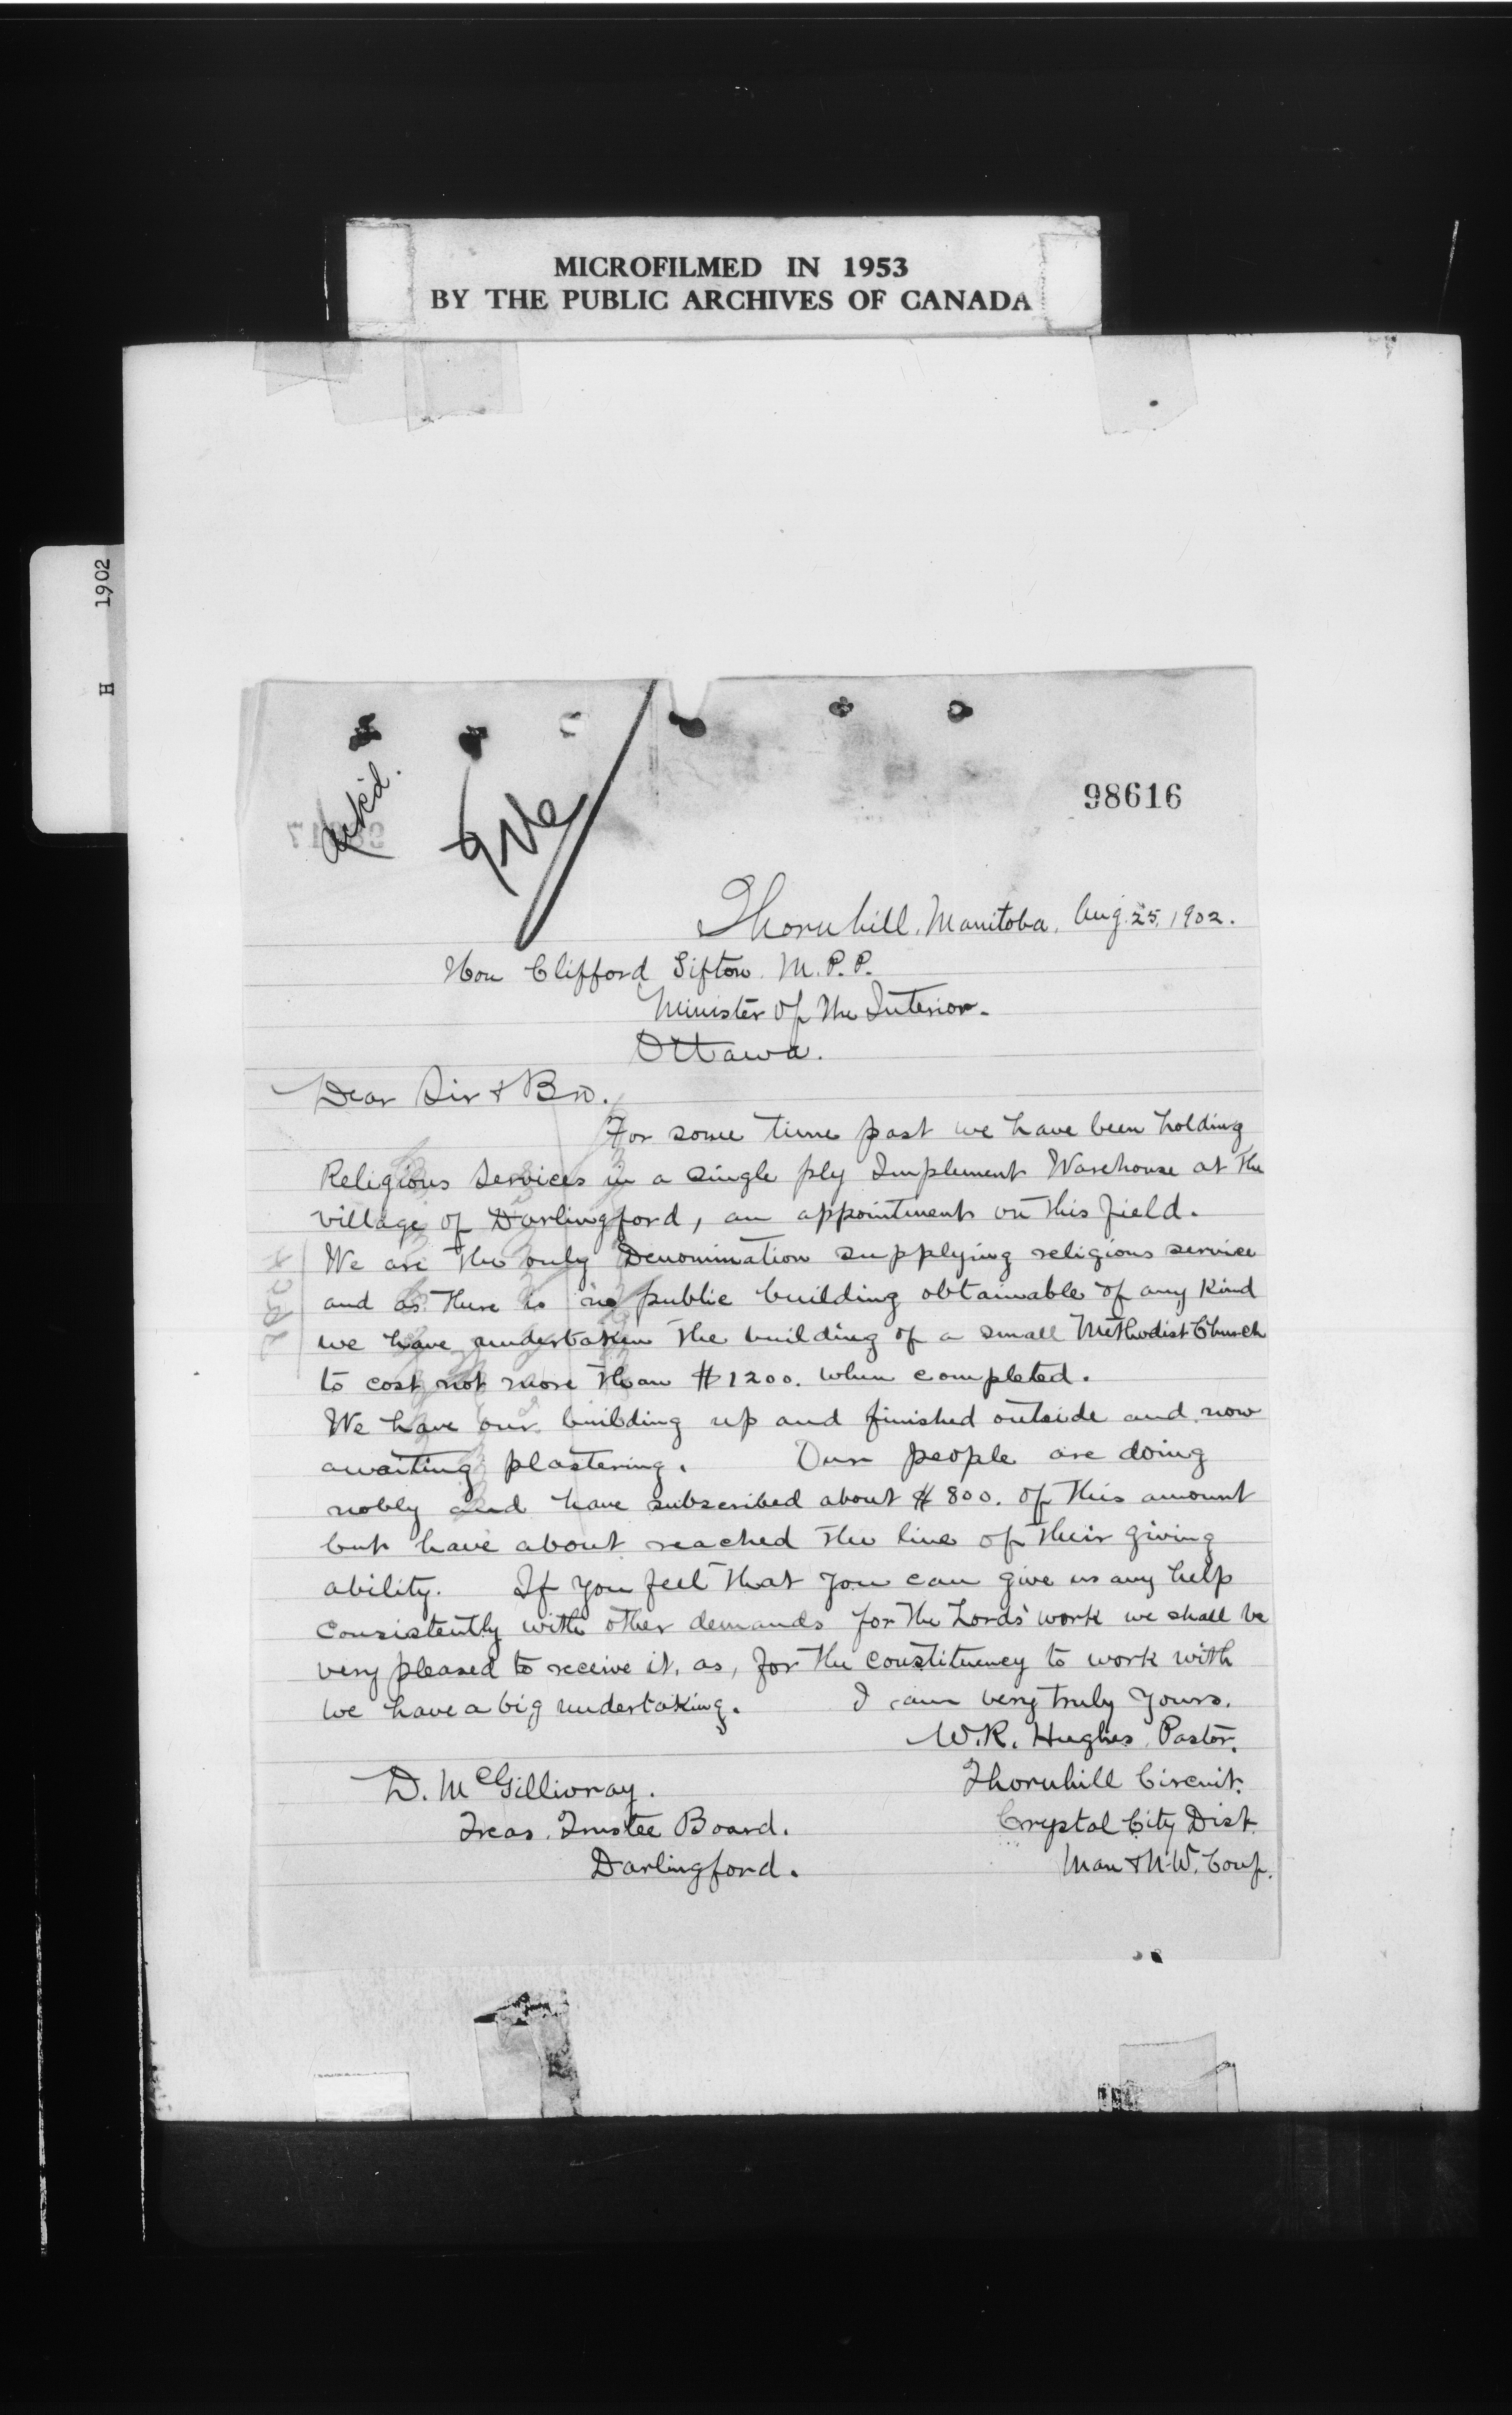 MICROFILMED IN 1953
BY THE PUBLIC ARCHIVES OF CANADA
H 1902
Ack'd.
98616
Thornhill, Manitoba, Aug. 25, 1902.
Hon Clifford Sifton. M.P.P.
Minister of the Interior.
Ottawa.
Dear Sir & Bro.
For some time past we have been holding
Religious Services in a single ply Implement Warehouse at the
village of Darlingford, an appointment on this field.
We are the only Denomination supplying religious service
and as there is no public building obtainable of any kind
we have undertaken the building of a small Methodist Church
to cost not more than $1200. when completed.
We have our building up and finished outside and now
awaiting plastering. Our people are doing
nobly and have subscribed about $800. of this amount
but have about reached the line of their giving
ability. If you feel that you can give us any help
consistently with other demands for the Lords' work we shall be
very pleased to receive it, as, for the constituency to work with
we have a big undertaking. I am very truly yours.
W.R. Hughes, Pastor.
D. McGillivray. Thornhill Circuit.
Treas. Trustee Board. Crystal City Dist.
Darlingford. Man & N.W. Conf.